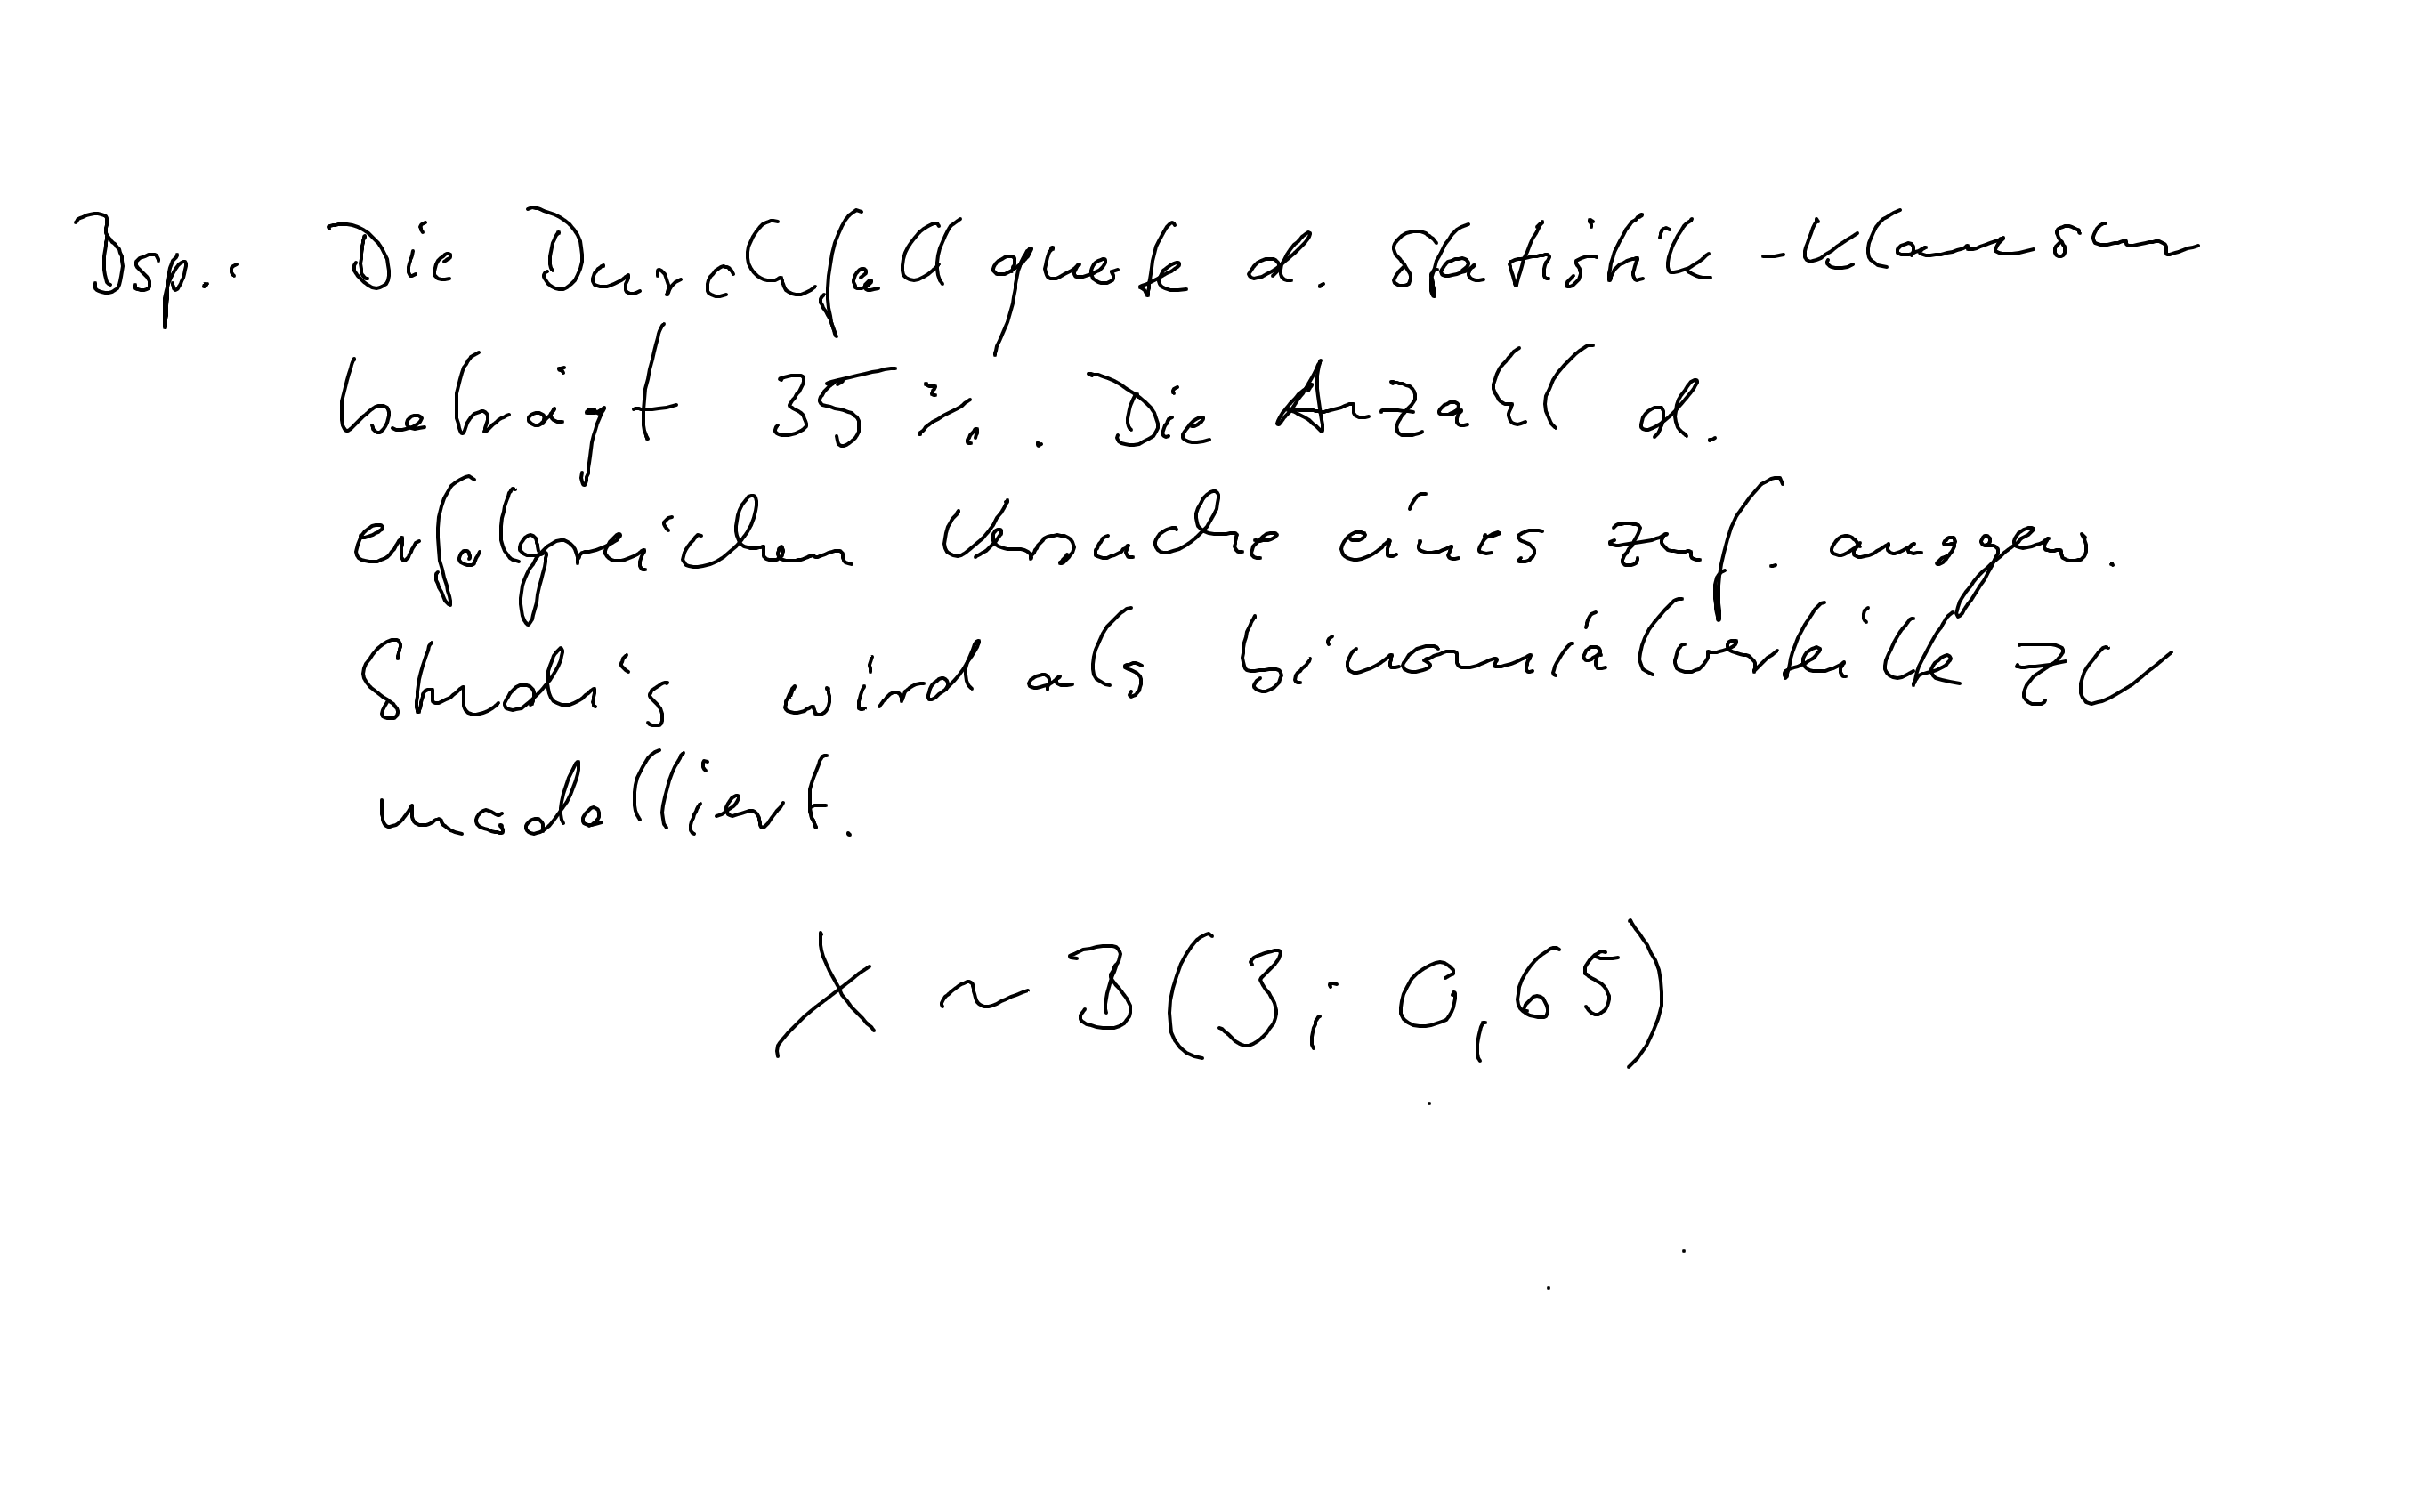 Bsp.: Die Durchfallquote d. Statistik-Klausur
beträgt 35 %. Die Anzahl d.
erfolgreichen Versuche eines zuf. ausgew.
Studis wird als binomialverteilte ZV
modelliert.
X ~ B(3; 0,65)